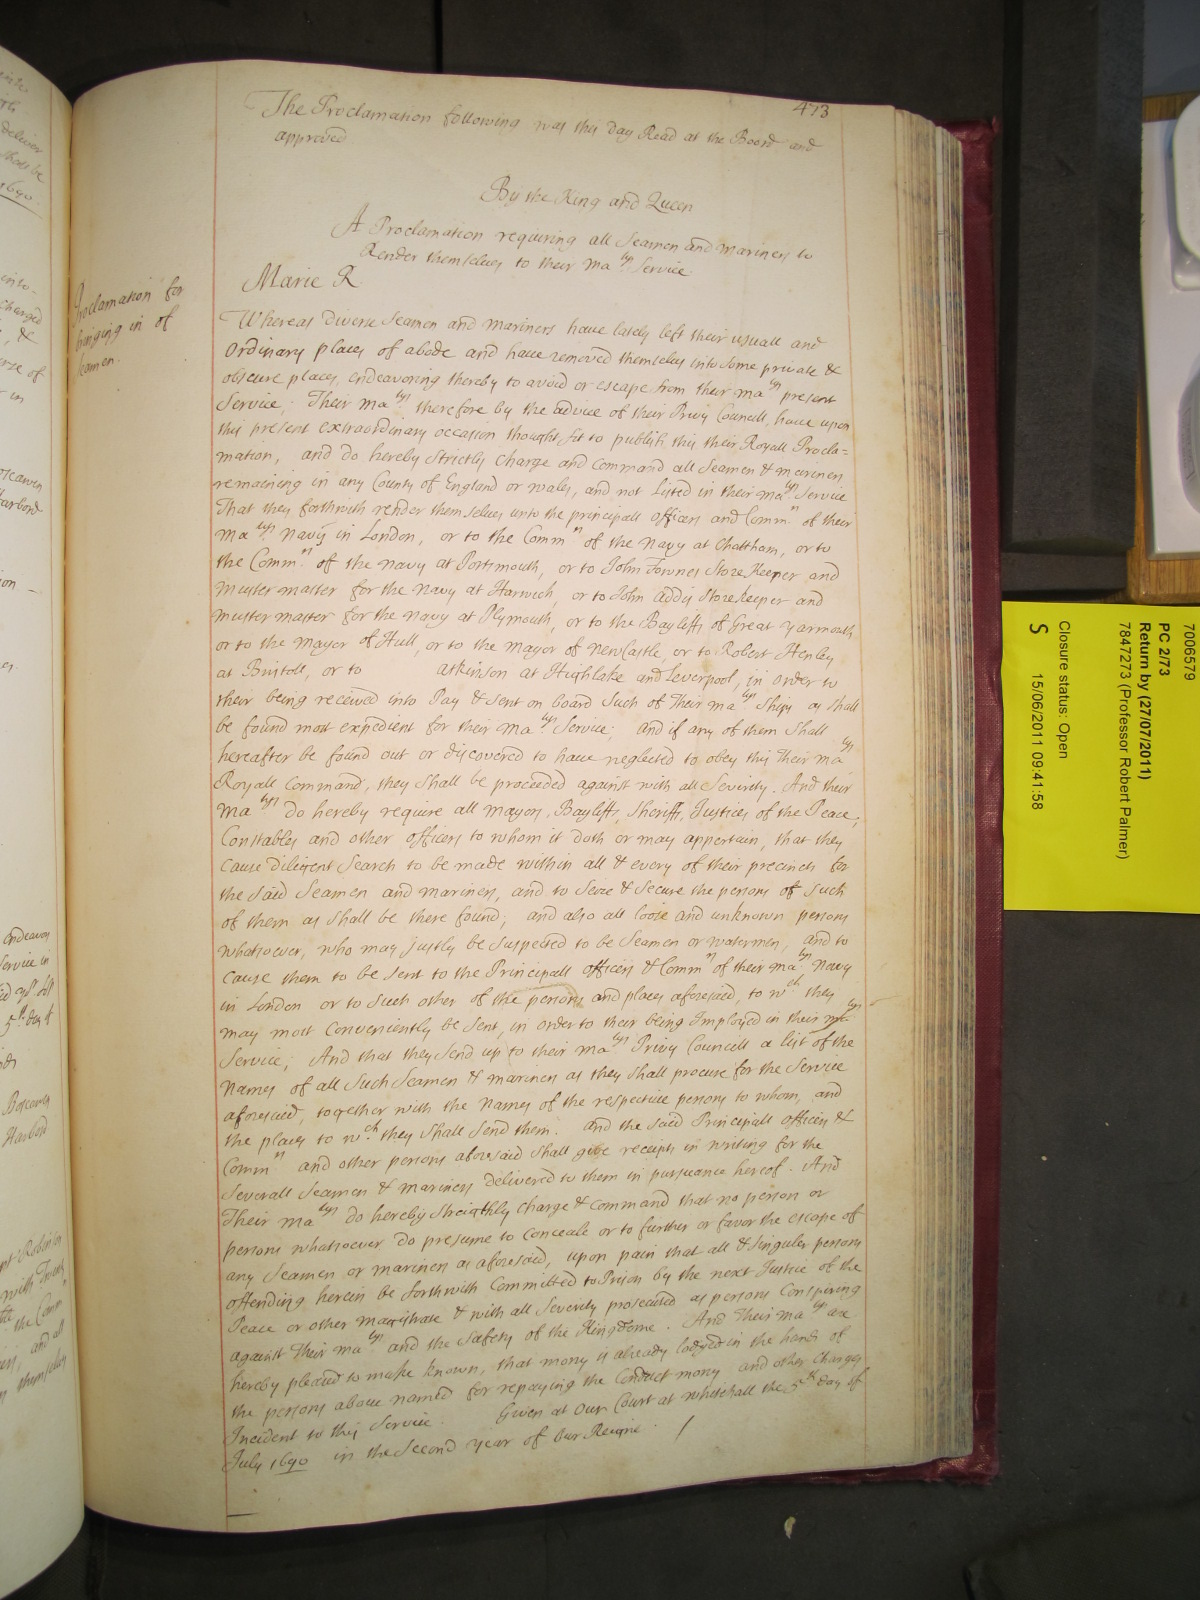 473
The Proclamation following was this day Read at the Board and
approved
By the King and Queen
A Proclamation requiring all Seamen and mariners to
Render themselves to their Ma.tys Service
Marie R
Proclamation for
bringing in of
Seamen.
Whereas diverse Seamen and mariners have lately left their usuall and
Ordinary places of abode and have removed themselves into some private &
obscure places, endeavoring thereby to avoid or escape from their Ma.tys present
Service; Their Ma.tys therefore by the advice of their Privy Councill, have upon
this present extraordinary occasion thought fit to publish this their Royall Procla=
mation, and do hereby Strictly Charge and Command all Seamen & mariners
remaining in any County of England or wales, and not Listed in their Ma.tys Service
That they forthwith render themselves unto the principall officers and Comm.rs of their
Ma.tys Navy in London, or to the Comm.rs of the Navy at Chattham, or to
the Comm.rs of the Navy at Portsmouth, or to John Fownes Store Keeper and
Muster master for the Navy at Harwich, or to John Addis Storekeeper and
Muster master for the Navy at Plymouth, or to the Bayleffs of Great Yarmouth
or to the Mayor of Hull, or to the Mayor of NewCastle, or to Robert Henley
at Bristoll, or to Atkinson at Highlake and Leverpool, in order to
their being received into Pay & sent on board Such of Their Ma.tys Ships as shall
be found most expedient for their Ma.tys Service; and if any of them Shall
hereafter be found out or discovered to have neglected to obey this Their Ma.tys
Royall Command, they shall be proceeded against with all Severity. And their
Ma.tys do hereby require all Mayors, Bayleffs, Sheriffs, Justices of the Peace,
Constables and other officers to whom it doth or may appertain, that they
cause diligent Search to be made within all & every of their precincts for
the said Seamen and mariners, and to Seize & Secure the persons of such
of them as shall be there found; and also all loose and unknown persons
whatsoever, who may justly be suspected to be Seamen or watermen, and to
cause them to be sent to the Principall officers & Comm.rs of their Ma.tys Navy
in London or to such other of the persons and places aforesaid, to w.ch they
may most Conveniently be sent, in order to their being Imployed in their Ma.tys
Service; And that they send up to their Ma.tys Privy Councill a list of the
Names of all Such Seamen & mariners as they shall procure for the Service
aforesaid, together with the Names of the respective persons to whom, and
the places to w.ch they Shall Send them. and the said Principall officers &
Comm.rs and other persons aforesaid shall give receipts in writing for the
Severall Seamen & mariners delivered to them in pursuance hereof. And
Their Ma.tys do hereby Streightly Charge & Command that no person or
persons whatsoever do presume to Conceale or to further or favor the escape of
any Seamen or mariners as aforesaid, upon pain that all & Singuler persons
offending herein be forthwith Committed to Prison by the next Justice of the
Peace or other Magistrate & with all Severity prosecuted as persons Conspiring
against Their Ma.tys and the Safety of the Kingdome. And Their Ma.tys are
hereby pleased to make known, that mony is already lodged in the hands of
the persons above named for repaying the Conduct mony and other Charges
Incident to this Service. Given at Our Court at Whitehall the 5th day of
July 1690 in the Second year of Our Reigne.
7006579
PC 2/73
Return by (27/07/2011)
7847273 (Professor Robert Palmer)
Closure status: Open
S 15/06/2011 09:41:58